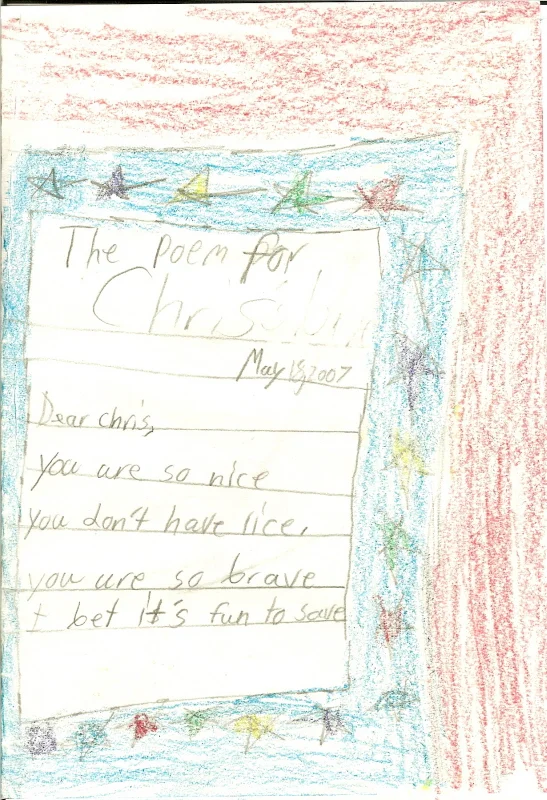 The Poem for
May 18, 2007
Dear chris,
you are so nice
you don't have lice,
you are so brave
I bet it's fun to save